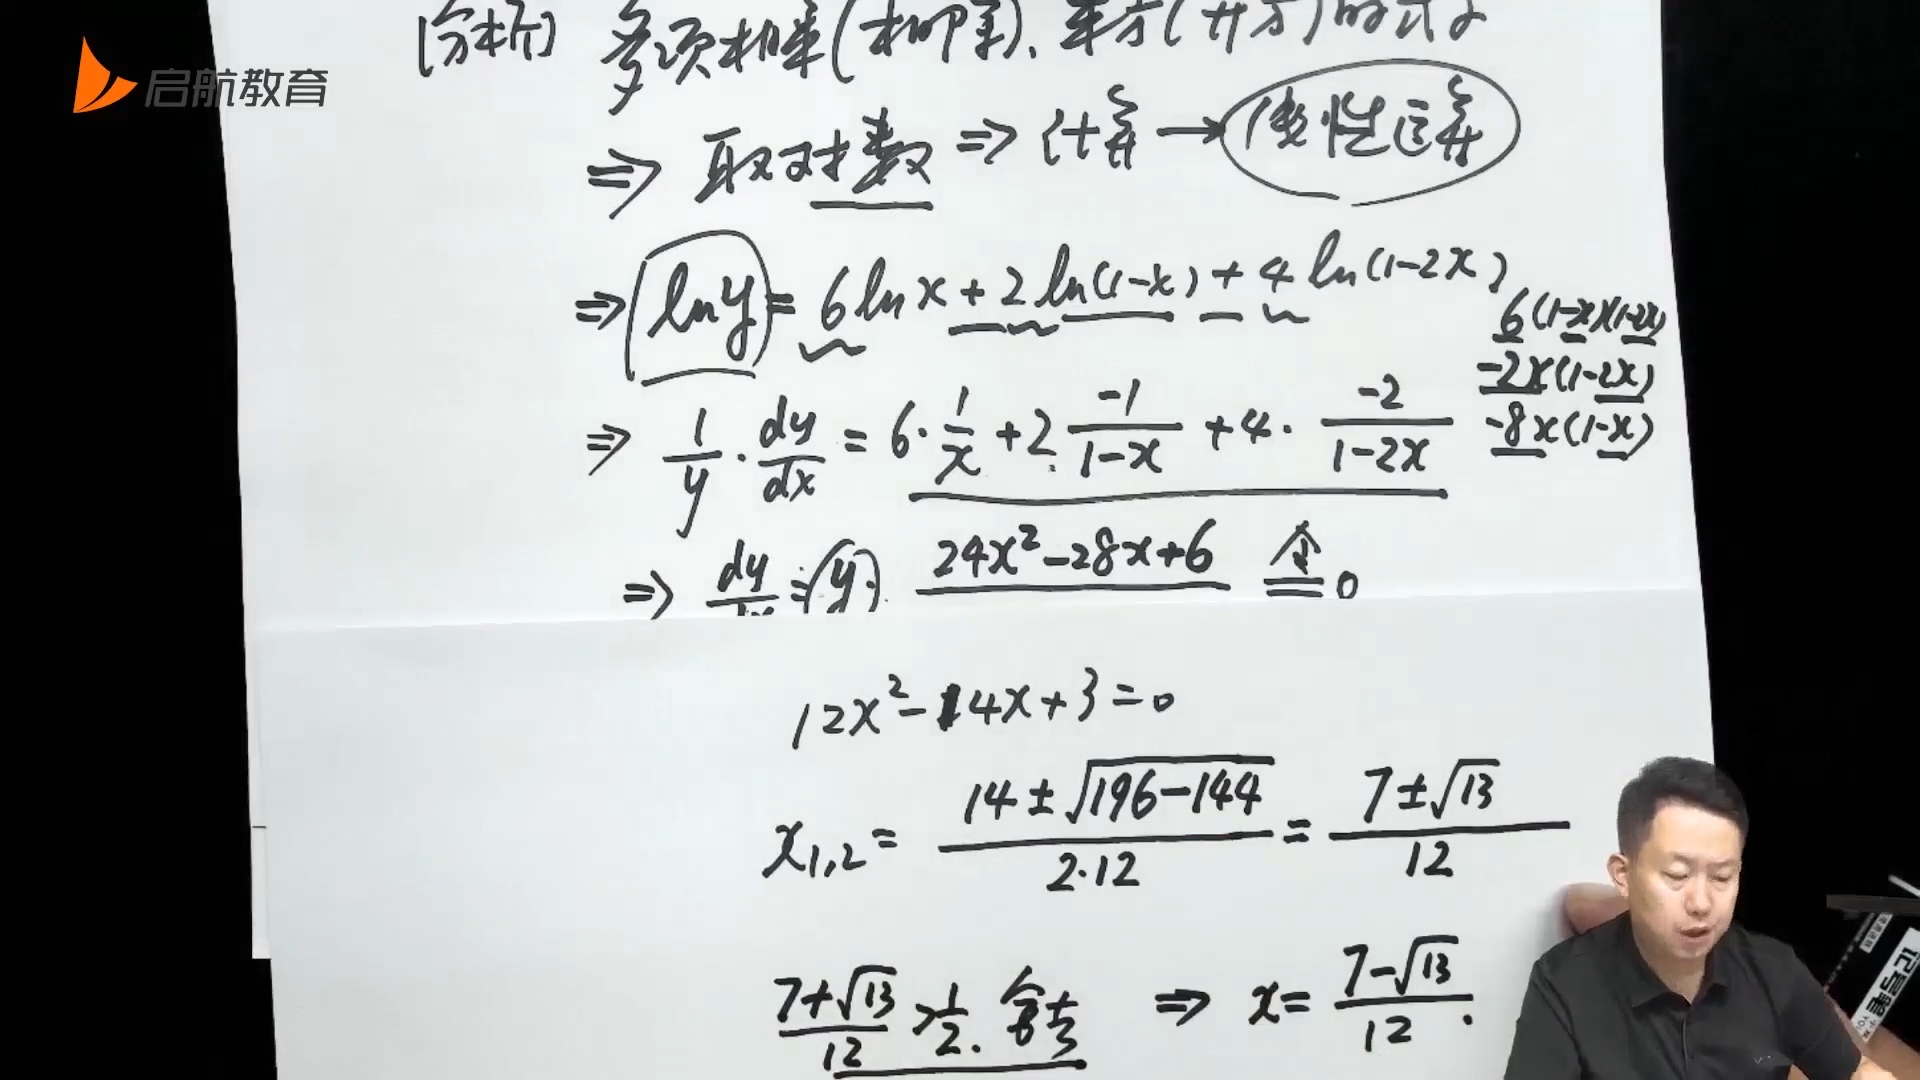 启航教育
[分析] 多项相乘(相除)、乘方(开方)的式子
⇒ 取对数 ⇒ 计算 → 线性运算
⇒ ln y = 6 ln x + 2 ln(1-x) + 4 ln(1-2x)
6(1-x)(1-2x)
-2x(1-2x)
-8x(1-x)
⇒ 1/y · dy/dx = 6 · 1/x + 2 · -1/(1-x) + 4 · -2/(1-2x)
⇒ dy/dx = y · 24x²-28x+6 令= 0
12x²-14x+3=0
x₁,₂ = (14±√(196-144))/(2·12) = (7±√13)/12
(7+√13)/12 > 1/2. 舍去 ⇒ x = (7-√13)/12.